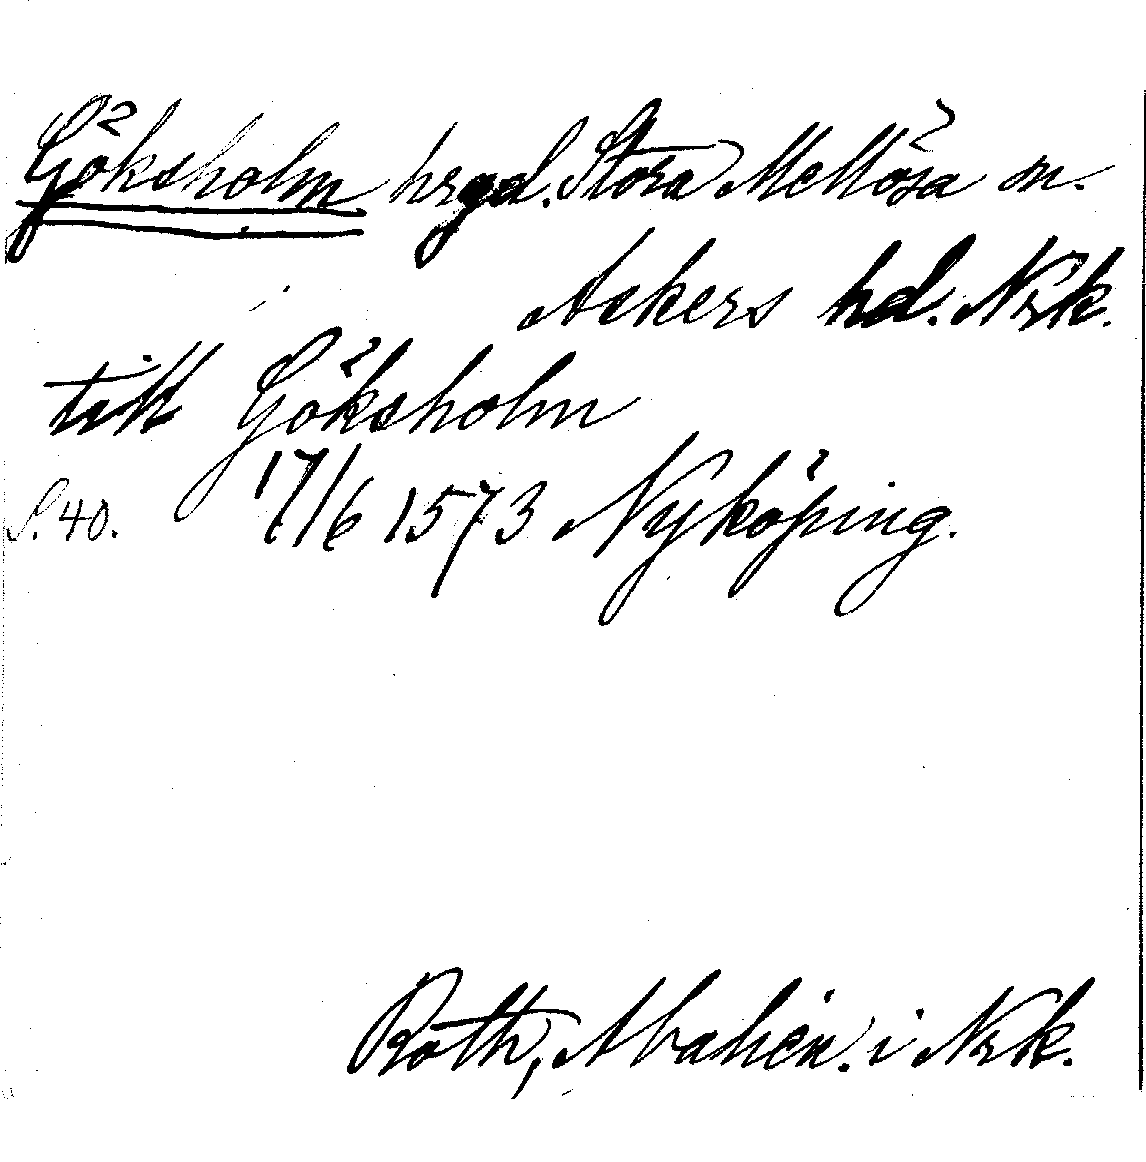 Göksholm hrgd. Stora Mellösa sn.
Askers hd. Nrk.
till Göksholm
S. 40. 17/6 1573 Nyköping.
Roth, i Nrk.